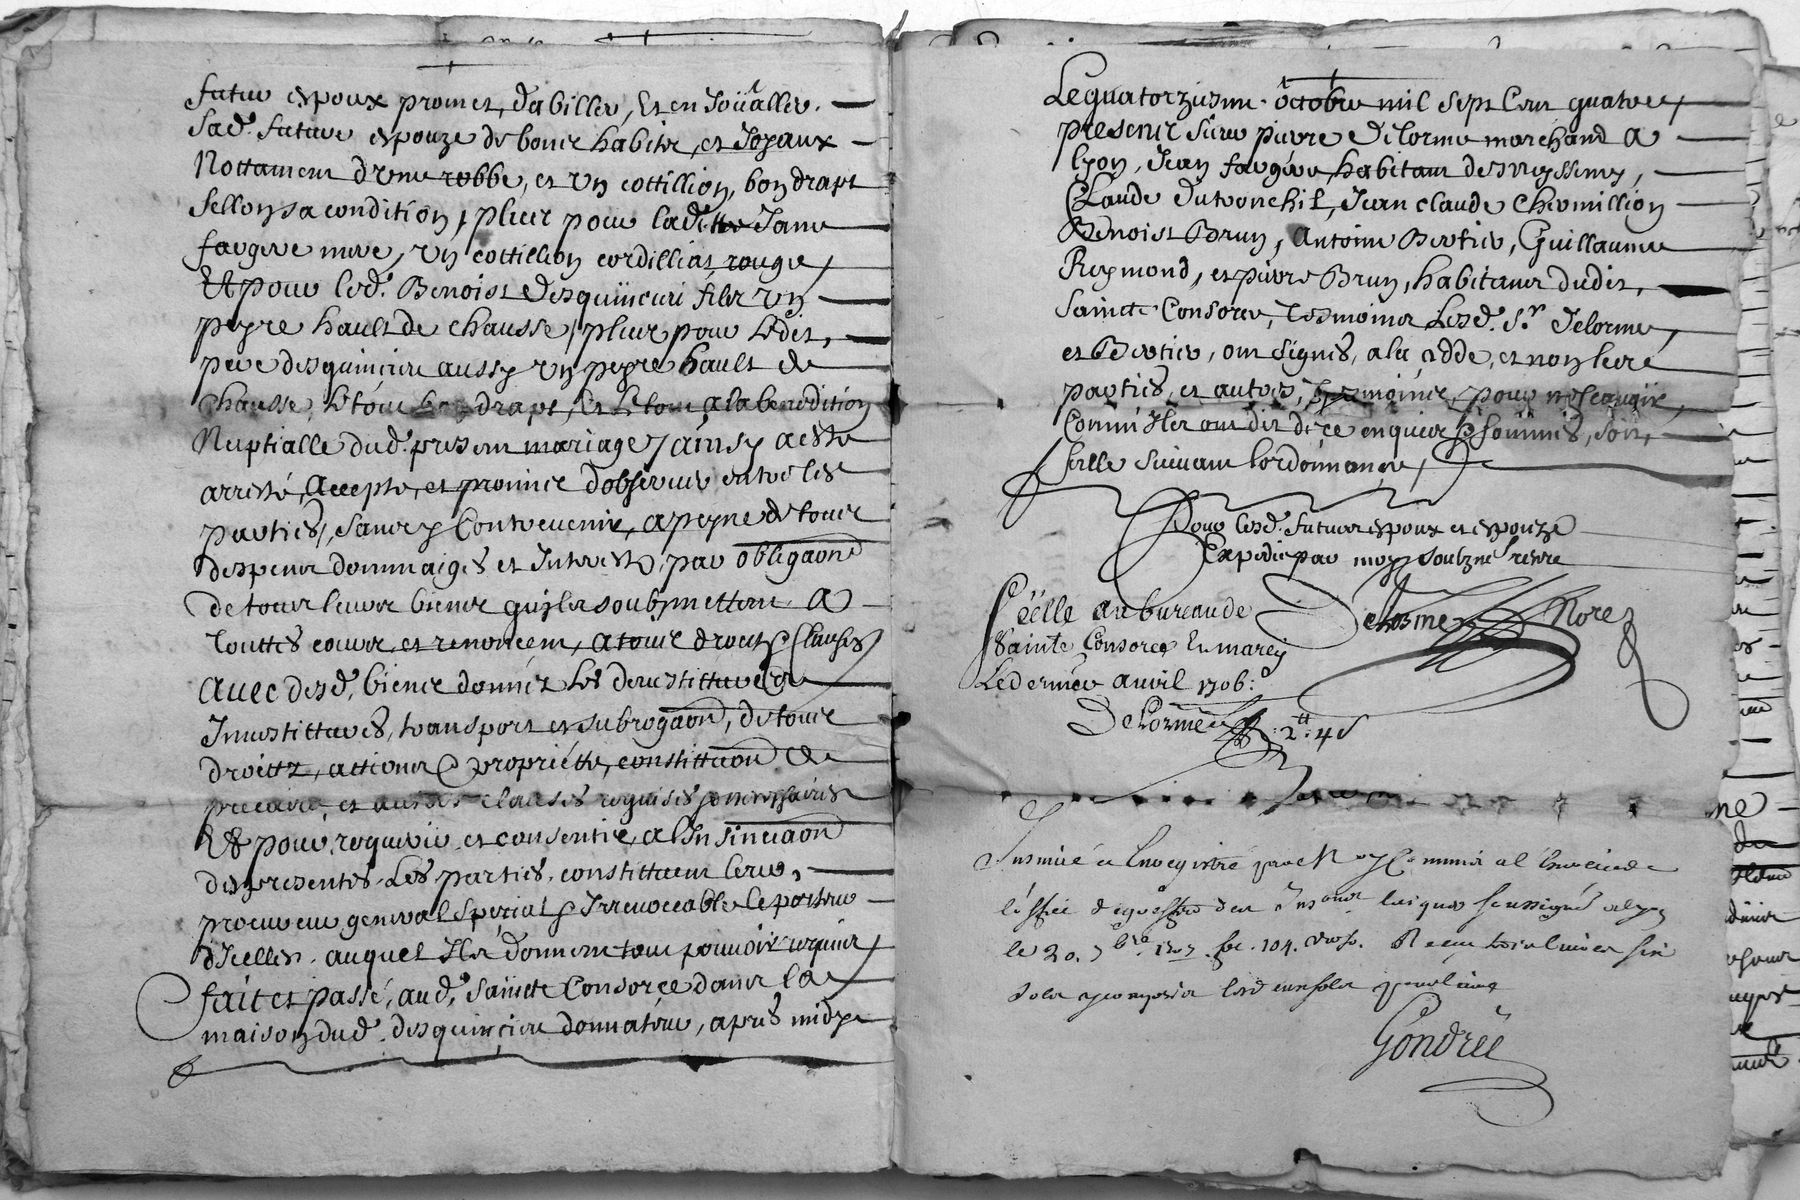 futur expoux promet, d'abiller, Et en Joüaller.
Sad. future expouze de bons habits, et Joyaux
Nottament d'une robbe, et un cottillion, bon drapt
sellon sa condition, plus pour laditte Jane
faugere mere, un cottillion cordilliat rouge,
Et pour led. Benoist Desquincieri fils un
peyre hault de chausse, plus pour ledit,
pere desquinciere aussy un peyre hault de
chausse, le tout bon drapt, Et le tout a la benedition
Nuptialle dud. present mariage, Ainsy a esté
arresté, accepté, et promis d'observer entre les
parties, sans y Contrevenir, a peyne de tous
despens dommaiges et Interests, par obligaon
de tous leurs biens quils soubsmettent a
touttes cours, et renoncent, a tous droits & Clauses
Avec desd. biens donnés Les devestittures
Investittures, transport et subrogaon, de tous
droittz, actions & propriétté, constittuon de
precaire, et autres clauses requises & necessaires
Et pour requerir et consentir, a l'Insinuaon
des presentes Les parties, constittuent leur,
procureur general special & Irrevocable le porteur
d'Icelles, auquel Ils donnent tout pouvoir requis,
fait et passé, aud. Saincte Consorce dans la
maison dud. desquinciere donnateur, apres midy
Le quatorziesme octobre mil sept Cent quatre,
present sieur pierre Delorme marchand a
lyon, Jean faugere, habitant de Meyssemy,
Claude Dutronchit, Jean claude Chermillion
Benoist Brun, Antoine Bertier, Guillaume
Reymond, et pierre Brun, habitants dudit,
Saincte Consorce, tesmoins Lesd. Sr. Delorme,
et Bertier, ont signés, a la cedde, et non les
parties, et autres, tesmoins, pour ne scavoir,
Comm' Ils ont dit de ce enquis & sommés, soit,
scelle suivant l'ordonnance,
Pour lesd. futurs expoux et expouze
Expedié par moy soubzné Nore
Delorme Nore
Scëlle au bureau de
Sainte Consorce En marcy
Le dernier avril 1706:
Delorme : 2tt: 4s
Insinué et Enregistré par Nous Commis a l'Exercice de
l'office de greffier des Insaons laiques soussigné a lyon
le 20. 7bre. 1707. fo. 104. verso. Receu
sols y compris les deux sols pour livre
Gondrée